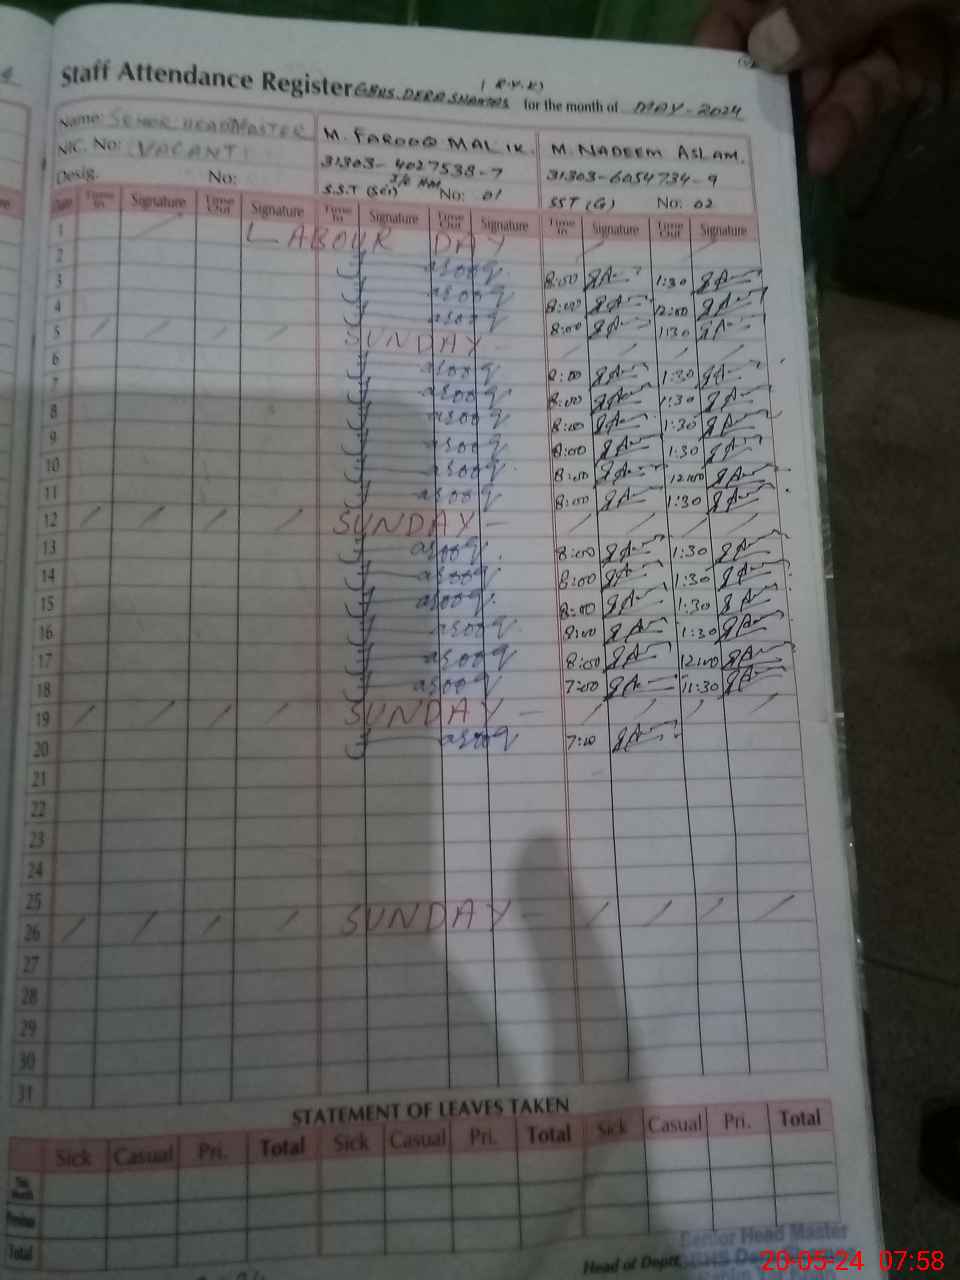 Staff Attendance Register GBHS. DERA SHAMAS (R.Y.K) for the month of MAY-2024
Name: SENIOR HEADMASTER M. FAROOQ MALIK. M. NADEEM ASLAM.
NIC. No: VACANT 31303-4027538-7 31303-6054734-9
Desig. No: S.S.T (Sci) I/C HM No: 01 SST (G) No: 02
Date Time In Signature Time Out Signature Time In Signature Time Out Signature Time In Signature Time Out Signature
1 LABOUR DAY
2 farooq 8:00 1:30
3 farooq 8:00 12:00
4 farooq 8:00 1:30
5 SUNDAY
6 farooq 8:00 1:30
7 farooq 8:00 1:30
8 farooq 8:00 1:30
9 farooq 8:00 1:30
10 farooq 8:00 12:00
11 farooq 8:00 1:30
12 SUNDAY
13 farooq 8:00 1:30
14 farooq 8:00 1:30
15 farooq 8:00 1:30
16 farooq 8:00 1:30
17 farooq 8:00 12:00
18 farooq 7:00 11:30
19 SUNDAY
20 farooq 7:00
21
22
23
24
25
26 SUNDAY
27
28
29
30
31
STATEMENT OF LEAVES TAKEN
Sick Casual Pri. Total Sick Casual Pri. Total Sick Casual Pri. Total
This Month
Previous
Total
Senior Head Master
Head of Deptt.
20-05-24 07:58